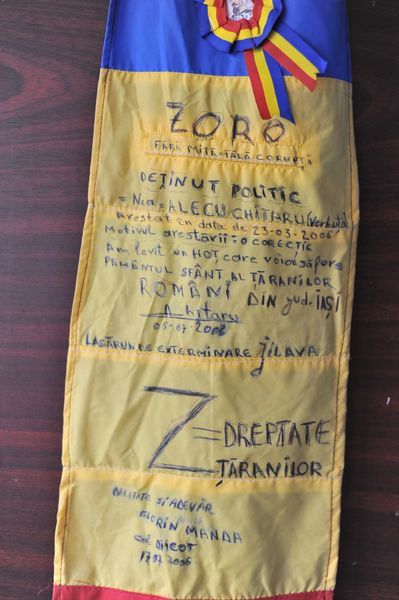 ZORO
FĂRĂ MITĂ-FĂRĂ CORUPȚI
DEȚINUT POLITIC
ALECU CHITARU
Arestat în data de 23-03-2006
Motivul arestării = O CORECȚIE
Am lovit un HOȚ, care voia să
PĂMÂNTUL SFÂNT AL ȚĂRANILOR
ROMÂNI DIN jud. IAȘI
A. Chitaru
05-07-2006
LAGĂRUL DE EXTERMINARE JILAVA
Z = DREPTATE
ȚĂRANILOR
SI ADEVĂR
FLORIN MANDA
17.07 2006